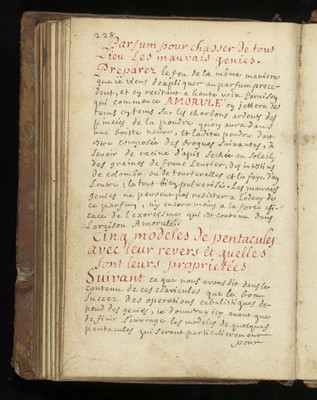 228
Parfum pour chasser de tout
Lieu Les mauvais genies.
Preparez le feu de la même maniere
que je viens d'expliquer au parfum prece-
dent, et en recitant a haute voix l'oraison
qui commence AMORULE, on jettera de
tems en tems sur les charbons ardens des
pincées de la poudre qu'on aura dans
une boiste neuve, et ladite poudre doit
estre composée des drogues suivantes, a
savoir de racine d'apis sechée au soleil,
des grains de franc Laurier, des intestins
de colombe ou de tourterelles et le foye d'un
Loutre; le tout bien pulverisés. Les mauvais
genies ne peuvent pas resister a l'odeur de
ce parfum, ny encor moins a la force effi-
cace de l'exorcisme qui est contenu dans
l'oraison Amorule.
Cinq modeles de pentacules
avec leur revers et quelles
sont leurs proprietées
Suivant ce que nous avons dit dans le
contenu de ces clavicules que le bon
succez des operations cabalistiques de-
pend des genies, je donneray icy avant que
de finir l'ouvrage les modeles de quelques
pentacules qui seront particulierement
pour